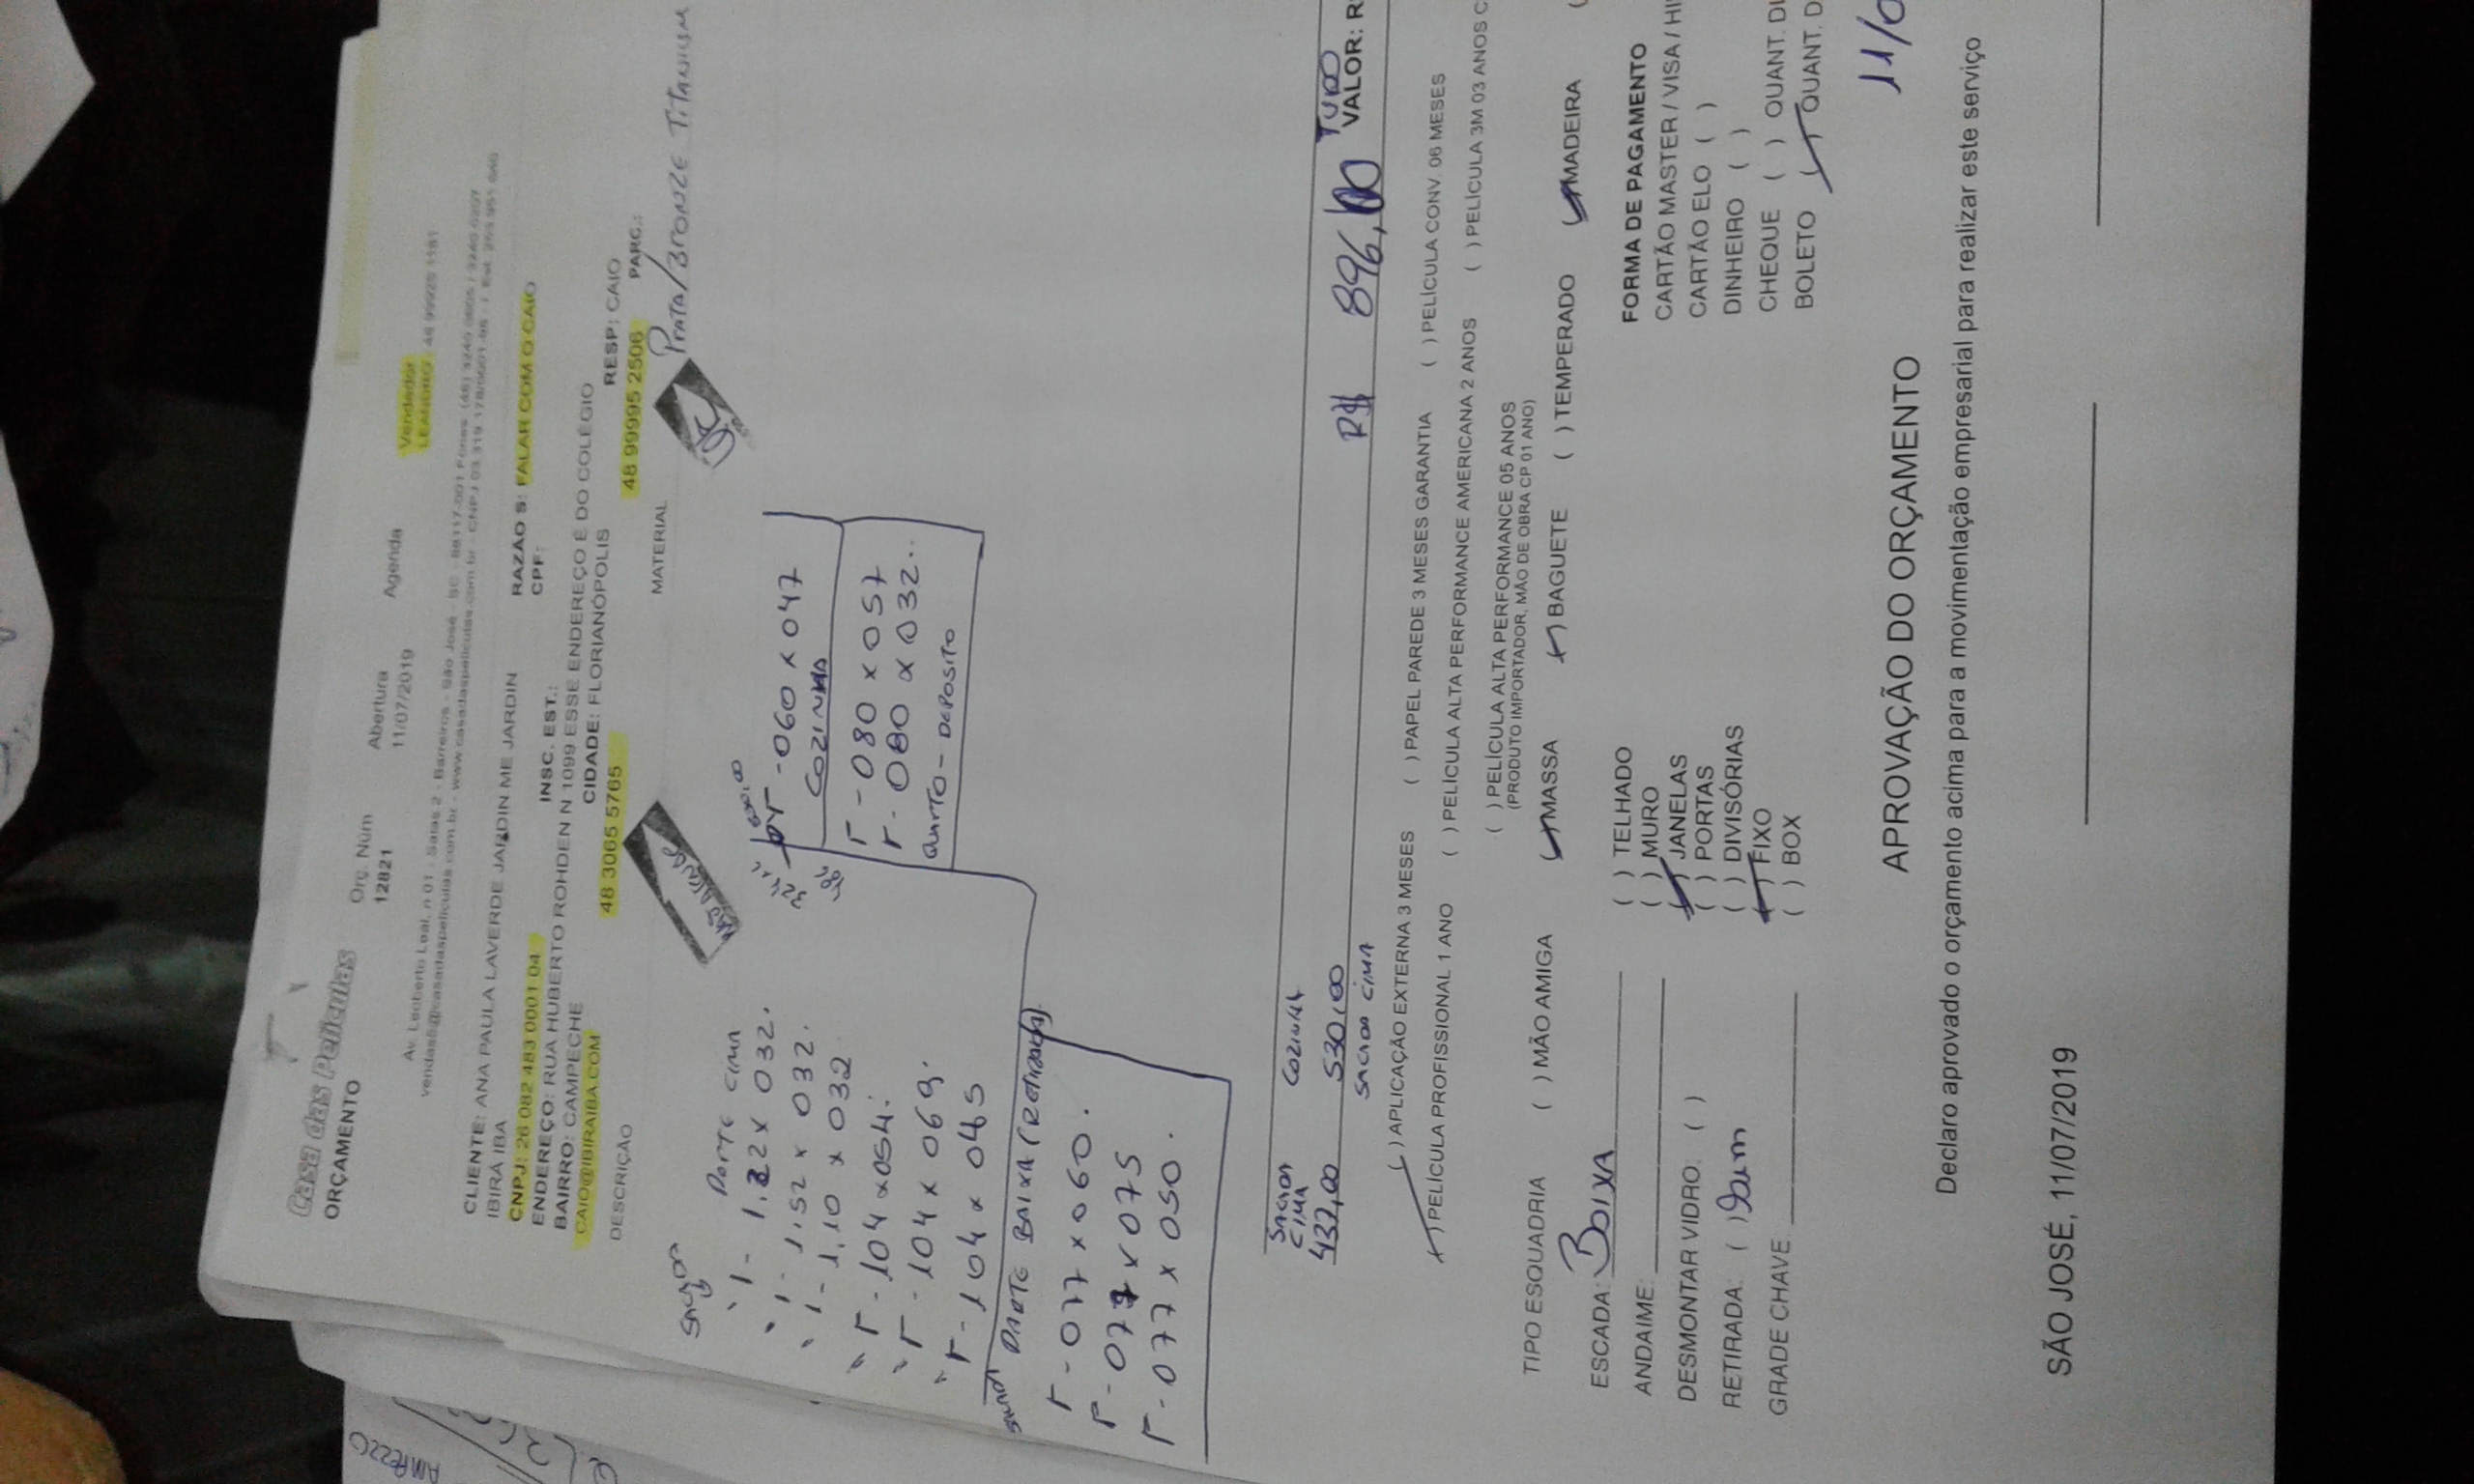 Casa das Películas
ORÇAMENTO
Orç. Núm
12821
Abertura
11/07/2019
Agenda
Vendedor
LEANDRO
CLIENTE: ANA PAULA LAVERDE JARDIN ME JARDIN
IBIRÁ IBA
RAZÃO S: FALAR COM O CAIO
CNPJ: 26 082 483 0001 04
INSC. EST.:
CPF:
ENDEREÇO: RUA HUBERTO ROHDEN N 1099 ESSE ENDEREÇO É DO COLÉGIO
BAIRRO: CAMPECHE
CIDADE: FLORIANÓPOLIS
RESP: CAIO
CAIO@IBIRAIBA.COM
48 3065 5765
48 99995 2506
PARC.:
DESCRIÇÃO
MATERIAL
PRATA/BRONZE TITANIUM
SACADA
PARTE CIMA
1 - 1.22 x 032.
1 - 1,52 x 032.
1 - 1,10 x 032
1 - 104 x 054.
1 - 104 x 069.
1 - 104 x 045
PARTE BAIXA (RETIRADA)
1 - 077 x 060.
1 - 077 x 075
1 - 077 x 050.
- 060 x 047
COZINHA
1 - 080 x 057
1 - 080 x 032..
QUARTO - DEPOSITO
SACADA
CIMA
COZINHA
432,00
530,00
SACADA CIMA
R$ 896,00
TUDO
VALOR: R
( ) APLICAÇÃO EXTERNA 3 MESES
( ) PAPEL PAREDE 3 MESES GARANTIA
( ) PELÍCULA CONV. 06 MESES
) PELÍCULA PROFISSIONAL 1 ANO
( ) PELÍCULA ALTA PERFORMANCE AMERICANA 2 ANOS
( ) PELÍCULA 3M 03 ANOS
( ) PELÍCULA ALTA PERFORMANCE 05 ANOS
(PRODUTO IMPORTADOR, MÃO DE OBRA CP 01 ANO)
TIPO ESQUADRIA
( ) MÃO AMIGA
MASSA
BAGUETE
( ) TEMPERADO
MADEIRA
ESCADA: BAIXA
ANDAIME:
DESMONTAR VIDRO: ( )
RETIRADA: ( )
GRADE CHAVE
( ) TELHADO
( ) MURO
( ) JANELAS
( ) PORTAS
( ) DIVISÓRIAS
( ) FIXO
( ) BOX
FORMA DE PAGAMENTO
CARTÃO MASTER / VISA /
CARTÃO ELO ( )
DINHEIRO ( )
CHEQUE ( ) QUANT.
BOLETO QUANT.
APROVAÇÃO DO ORÇAMENTO
11/0
Declaro aprovado o orçamento acima para a movimentação empresarial para realizar este serviço
SÃO JOSÉ, 11/07/2019